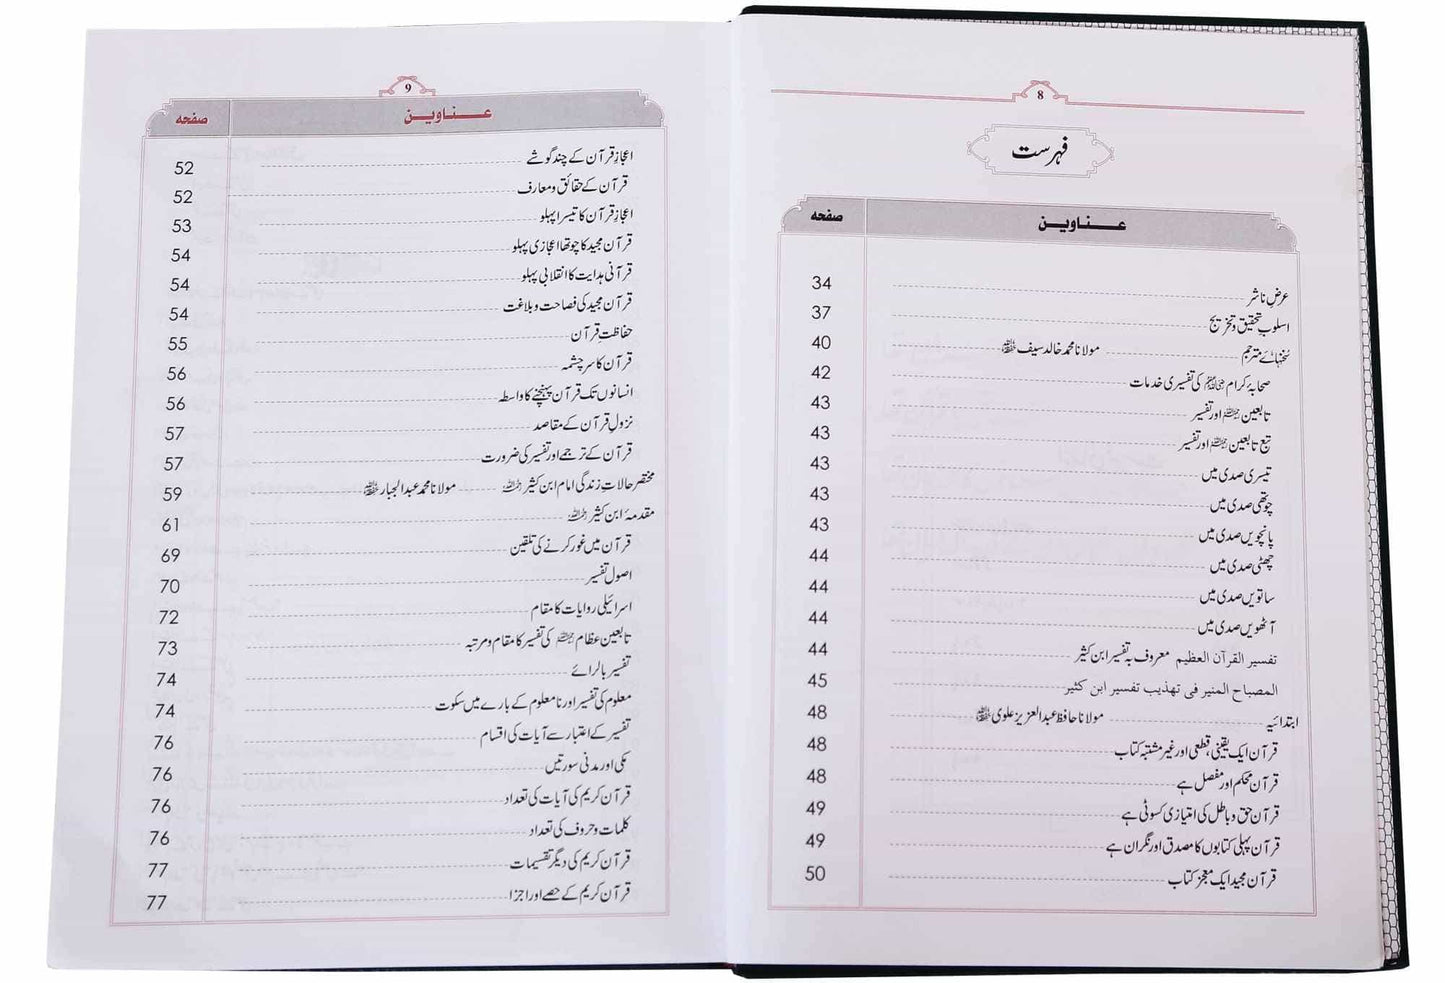 8
فہرست
عناوین صفحہ
عرضِ ناشر 34
اسلوبِ تحقیق و تخریج 37
سخنہائے مترجم مولانا محمد خالد سیف ﷾ 40
صحابۂ کرام ﷢ کی تفسیری خدمات 42
تابعین ﷭ اور تفسیر 43
تبع تابعین ﷭ اور تفسیر 43
تیسری صدی میں 43
چوتھی صدی میں 43
پانچویں صدی میں 43
چھٹی صدی میں 44
ساتویں صدی میں 44
آٹھویں صدی میں 44
تفسیر القرآن العظیم معروف بہ تفسیر ابن کثیر 44
المصباح المنیر فی تهذیب تفسیر ابن کثیر 45
ابتدائیہ مولانا حافظ عبدالعزیز علوی ﷾ 48
قرآن ایک یقینی، قطعی اور غیر مشتبہ کتاب 48
قرآن محکم اور مفصل ہے 48
قرآن حق و باطل کی امتیازی کسوٹی ہے 49
قرآن پہلی کتابوں کا مصدق اور نگران ہے 49
قرآن مجید ایک معجز کتاب 50
9
عناوین صفحہ
اعجازِ قرآن کے چند گوشے 52
قرآن کے حقائق و معارف 52
اعجازِ قرآن کا تیسرا پہلو 53
قرآن مجید کا چوتھا اعجازی پہلو 54
قرآنی ہدایت کا انقلابی پہلو 54
قرآن مجید کی فصاحت و بلاغت 54
حفاظت قرآن 55
قرآن کا سرچشمہ 56
انسانوں تک قرآن پہنچنے کا واسطہ 56
نزولِ قرآن کے مقاصد 57
قرآن کے ترجمے اور تفسیر کی ضرورت 57
مختصر حالاتِ زندگی امام ابن کثیر ﷫ مولانا محمد عبدالجبار ﷾ 59
مقدمۂ ابن کثیر ﷫ 61
قرآن میں غور کرنے کی تلقین 69
اصول تفسیر 70
اسرائیلی روایات کا مقام 72
تابعین عظام ﷭ کی تفسیر کا مقام و مرتبہ 73
تفسیر بالرائے 74
معلوم کی تفسیر اور نامعلوم کے بارے میں سکوت 74
تفسیر کے اعتبار سے آیات کی اقسام 76
مکی اور مدنی سورتیں 76
قرآن کریم کی آیات کی تعداد 76
کلمات و حروف کی تعداد 76
قرآن کریم کی دیگر تقسیمات 77
قرآن کریم کے حصے اور اجزا 77